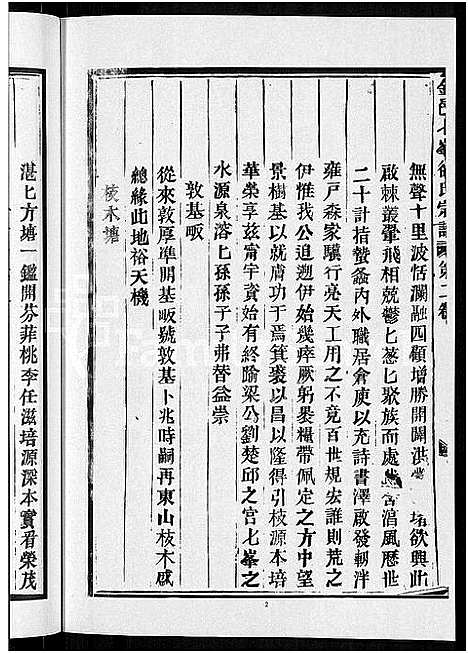 金邑七峯徐氏宗譜 第二卷
無聲十里波恬瀾融四顧增勝開闢洪 堵欲興此
啟棘叢翬飛相兢鬱匕葱匕聚族而處 宮滀風歷世
二十計指蟄蟄內外職居倉庾以充詩書澤啟發軔泮
雍戸森家驥行亮天工用之不竟百世規宏誰則荒之
伊惟我公追遡伊始幾瘁厥躬褁糧帶佩定之方中望
景樹基以就膚功于焉箕裘以昌以隆得引枝源本培
華榮享茲甯宇資始有終隃梁公劉楚邱之宮七峯之
水源泉溶匕孫孫子子弗替益崇
敦基畈
從來敦厚準開基畈號敦基卜兆時嗣再東山枝木感
總緣此地裕天機
枝木塘
湛匕方塘一鑑開芬菲桃李任滋培源深本實看榮茂
2